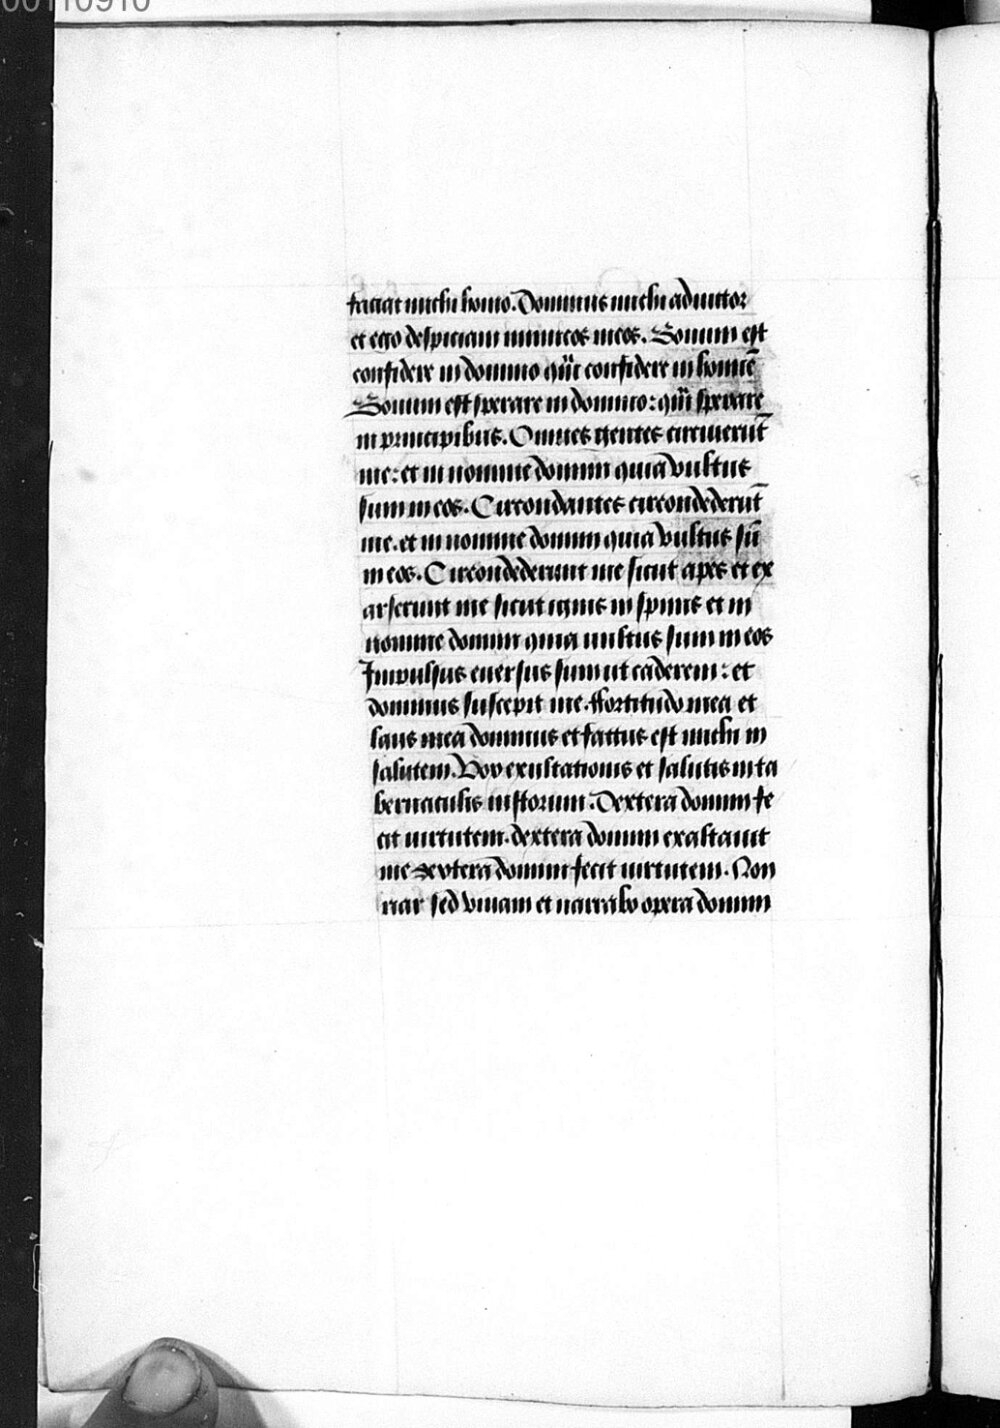 00110910
faciat michi homo. Dominus michi adiutor
et ego despiciam inimicos meos. Bonum est
confidere in domino qͣm confidere in homiē
Bonum est sperare in domino: qͣm sperare
in principibus. Omnes gentes circuierūt
me: et in nomine domini quia vultus
sum in eos. Circondantes circondederūt
me. et in nomine domini quia vultus sū
in eos. Circondederunt me sicut apes et ex
arserunt me sicut ignis in spinis et in
nomine domini quia uultus sum in eos
Impulsus euersus sum ut caderem: et
dominus suscepit me. ffortitudo mea et
laus mea dominus et fattus est michi in
salutem. Vox exultationis et salutis in ta
bernaculis iustorum. Dextera domini fe
cit uirtutem. dextera domini exaltauit
me dextera domini fecit uirtutem. Non
riar sed viuam et narrabo opera domini